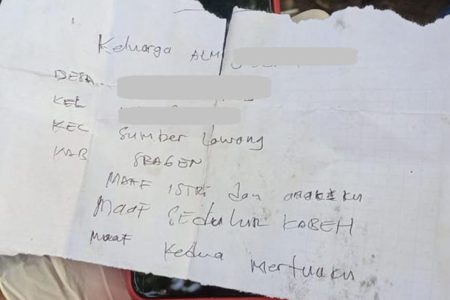 Keluarga ALM
DESA
KEL
KEC Sumber Lawang
KAB SRAGEN
MAAF ISTRI dan anakku
MAAF SEDULUR KABEH
Maaf Kedua Mertuaku